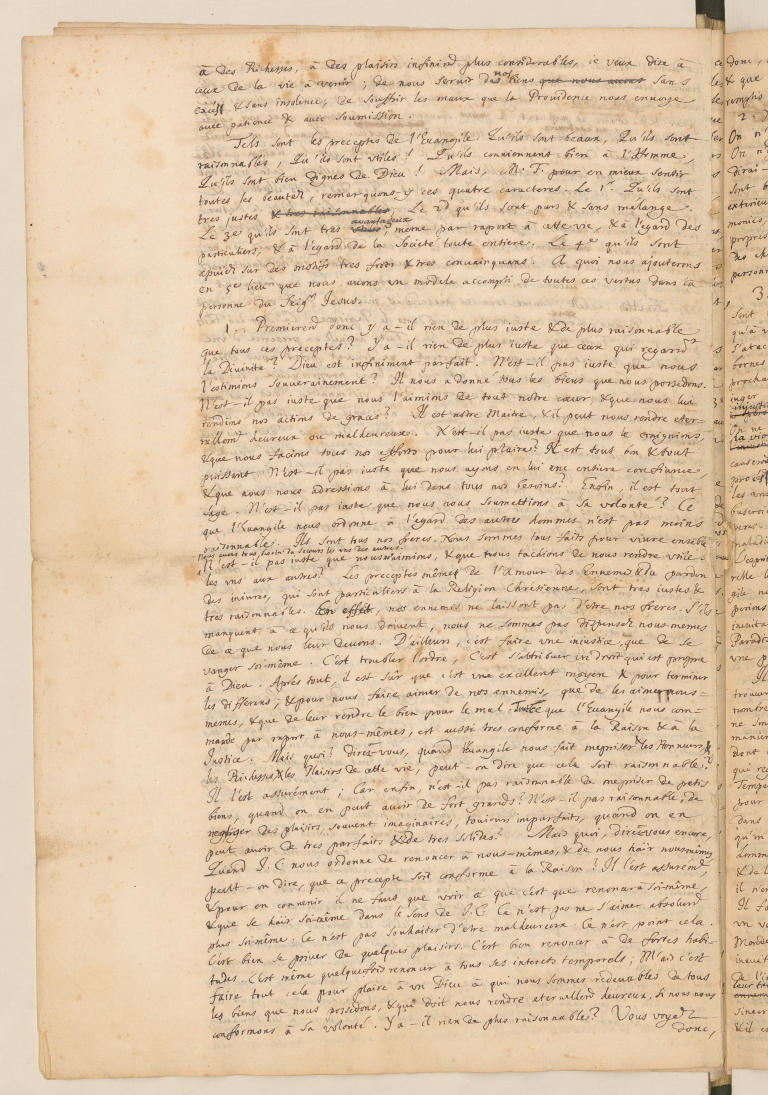 à des Richesses, à des plaisirs infinimt plus considerables, ie veux dire à
ceux de la vie à venir ; de nous servir de nos biens que nous avons sans
excez & sans insolence, de souffrir les maux que la Providence nous envoye
avec patience & avec soumission.
Tels sont les preceptes de l'Evangile. Qu'ils sont beaux, Qu'ils sont
raisonnables, Qu'ils sont utiles ! Qu'ils conviennent bien à l'Homme,
Qu'ils sont bien dignes de Dieu ! Mais, M. F. pour en mieux sentir
toutes les beautez, remarquons-y ces quatre caracteres. Le 1r. Qu'ils sont
tres justes & tres raisonnables. Le 2d qu'ils sont purs & sans melange.
Le 3e qu'ils sont tres avantageux, meme par raport à cette vie, & à l'egard des
particuliers, & à l'egard de la Societé toute entiere. Le 4e qu'ils sont
apuiez sur des motifs tres forts & tres convainquans. A quoi nous ajouterons
en 5e lieu que nous avons un modele accompli de toutes ces vertus dans la
personne du Seigr Jesus.
1. Premieremt donc y a-il rien de plus iuste & de plus raisonnable
que tous ces preceptes? Y a-il rien de plus iuste que ceux qui regardt
la Divinité? Dieu est infiniment parfait. N'est-il pas iuste que nous
l'estimions souverainement? Il nous a donné tous les biens que nous possedons.
N'est-il pas iuste que nous l'aimions de tout notre cœur, & que nous lui
rendions nos actions de graces? Il est notre Maitre, & il peut nous rendre eter-
nellemt heureux ou malheureux. N'est-il pas iuste que nous le craignions,
& que nous facions tous nos efforts pour lui plaire? Il est tout bon & tout
puissant. N'est-il pas iuste que nous ayons en lui une entiere confiance,
& que nous nous adressions à lui dans tous nos besoins? Enfin, il est tout
sage. N'est-il pas iuste que nous nous soumettions à sa volonté? Ce
que l'Evangile nous ordonne à l'egard des autres hommes n'est pas moins
raisonnable. Ils sont tous nos freres. Nous sommes tous faits pour vivre ensemble
Nous avons tous besoin du secours les uns des autres.
N'est-il pas iuste que nous nous aimions, & que tous tachions de nous rendre utile
les uns aux autres? Les preceptes mêmes de l'Amour des Ennemis & du pardon
des iniures, qui sont particuliers à la Religion Chrétienne, sont tres iustes &
tres raisonnables. En effet, nos ennemis ne laissent pas d'etre nos freres. S'ils
manquent à ce qu'ils nous doivent, nous ne sommes pas dispensez nous-memes
de ce que nous leur devons. D'ailleurs, c'est faire une iniustice, que de se
vanger soi-même. C'est troubler l'ordre, C'est s'attribuer un droit qui est propre
à Dieu. Aprés tout, il est sûr que c'est un excellent moyen & pour terminer
les differens, & pour nous faire aimer de nos ennemis, que de les aimer nous-
memes, & que de leur rendre le bien pour le mal. Tout ce que l'Evangile nous com-
mande par raport à nous-mêmes, est aussi tres conforme à la Raison & à la
Justice. Mais quoi! direz-vous, quand l'Evangile nous fait mepriser les Honneurs,
les Richesses, & les Plaisirs de cette vie, peut-on dire que cela soit raisonnable?
Il l'est assurément; Car enfin, n'est-il pas raisonnable de mepriser de petis
biens, quand on en peut avoir de fort grands? N'est-il pas raisonnable, de
negliger des plaisirs, souvent imaginaires, toujours imparfaits, quand on en
peut avoir de tres parfaits & de tres solides? Mais quoi, direz-vous encore,
Quand J. C. nous ordonne de renoncer à nous-mêmes, & de nous haïr nous mêmes
peut-on dire, que ce precepte soit conforme à la Raison? Il l'est assurémt,
& pour en convenir il ne faut que voir ce que c'est que renoncer à soi-même,
& que se haïr soi-même dans le sens de J. C. Ce n'est pas ne s'aimer absolumt
plus soi-même. Ce n'est pas souhaiter d'etre malheureux. Ce n'est point cela.
C'est bien se priver de quelques plaisirs. C'est bien renoncer à de fortes habi-
tudes. C'est même quelquefois renoncer à tous ses interets temporels; Mais c'est
faire tout cela pour plaire à un Dieu à qui nous sommes redevables de tous
les biens que nous possedons, & qui doit nous rendre eternellemt heureux, si nous nous
conformons à sa volonté. Y a-il rien de plus raisonnable? Vous voyez
donc,